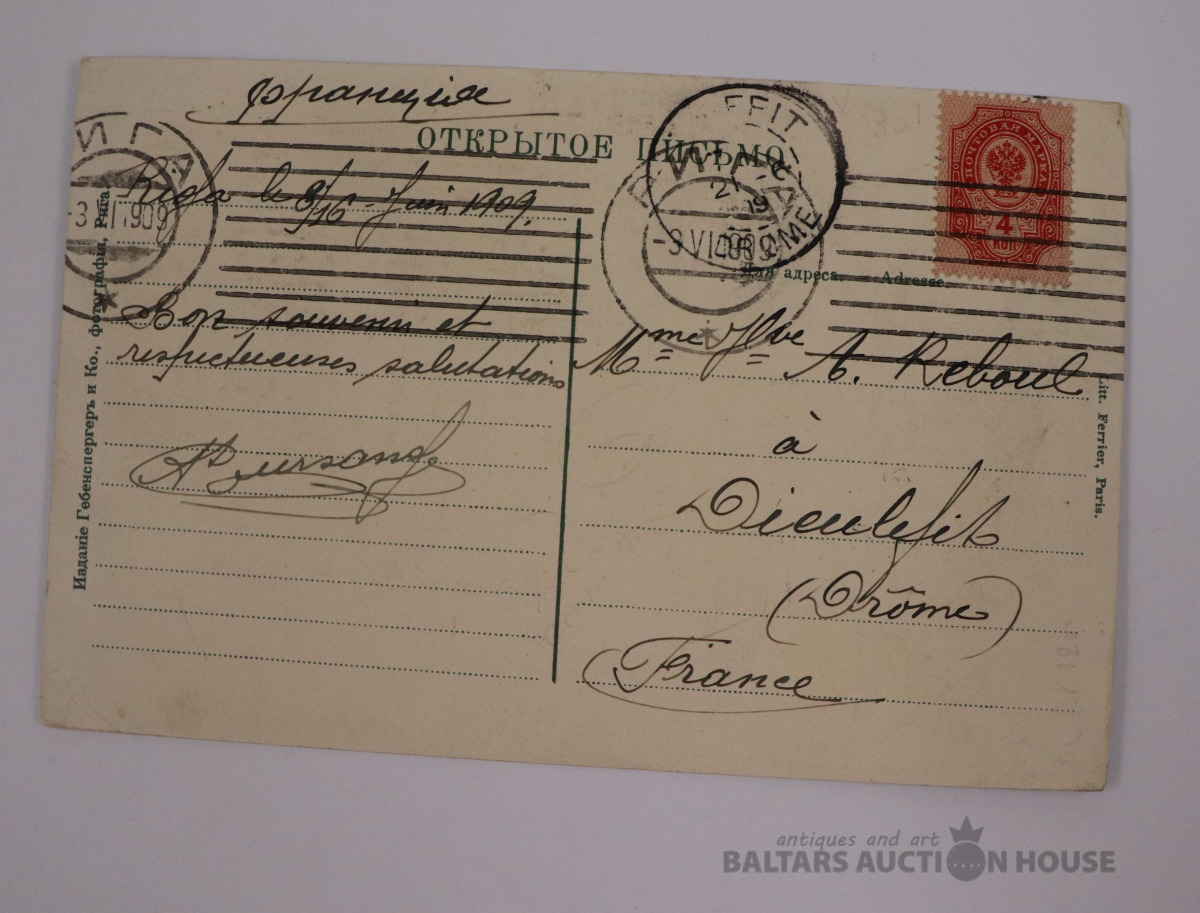 Франція
ОТКРЫТОЕ ПИСЬМО.
РИГА
-3 VI 1909
EFIT
21
09
DROME
ПОЧТОВАЯ МАРКА
4
КОП
Для адреса. — Adresse.
Riga le 3/16 Juin 1909.
Bon souvenir et
respectueuses salutations
Mme Vve A. Reboul
à
Dieulefit
(Drôme)
France
Изданіе Гебенспергеръ и Ко., фотографія, Рига.
Litt. Ferrier, Paris.
antiques and art
BALTARS AUCTION HOUSE